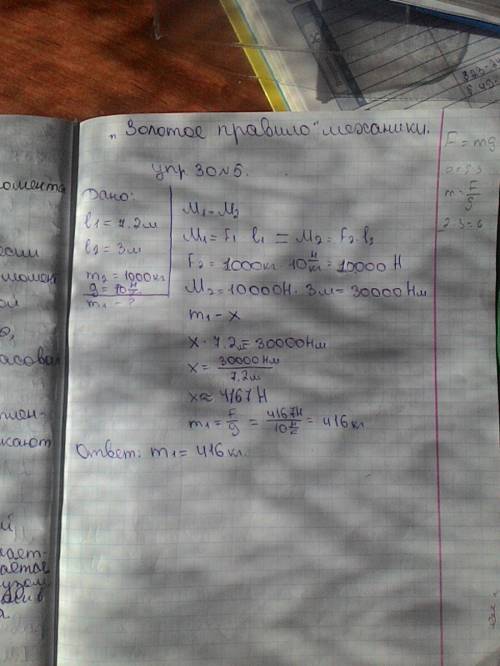 „Золотое правило" механики.
упр 30 №5.
Дано:
l1 = 7.2м
l2 = 3м
m2 = 1000кг
g = 10 Н/кг
m1 - ?
M1 = M2
M1 = F1 · l1 = M2 = F2 · l2
F2 = 1000кг · 10 Н/кг = 10000 Н
M2 = 10000Н · 3м = 30000 Нм
m1 - x
x · 7.2м = 30000Нм
x = 30000Нм / 7.2м
x ≈ 4167 Н
m1 = F/g = 4167Н / 10 Н/кг = 416кг
Ответ: m1 = 416кг.
F = mg
m = F/g
2·3=6
момента
момент
ой